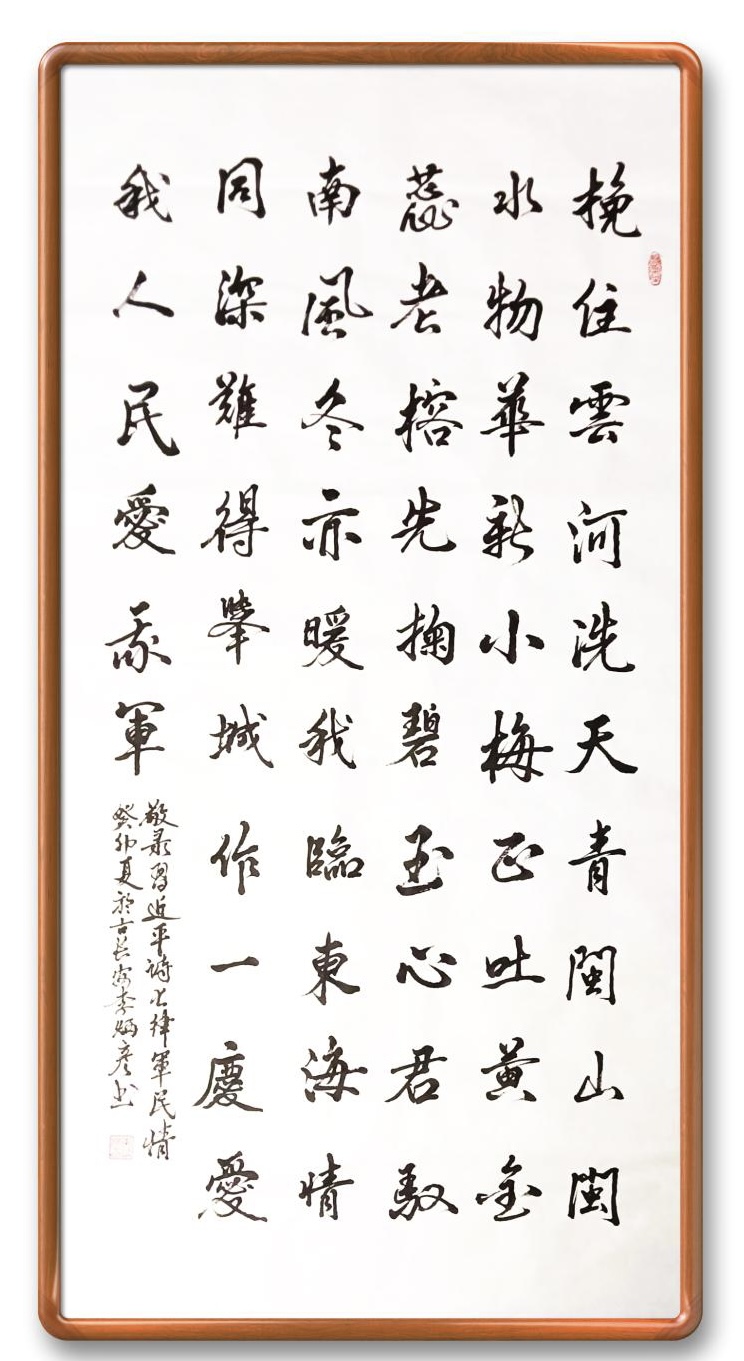 挽住雲河洗天青閩山閩
水物華新小梅正吐黃金
蕊老榕先掬碧玉心君馭
南風冬亦暖我臨東海情
同深難得舉城作一慶愛
我人民愛我軍
敬录習近平詩七律軍民情
癸卯夏於古长安李炳彦书